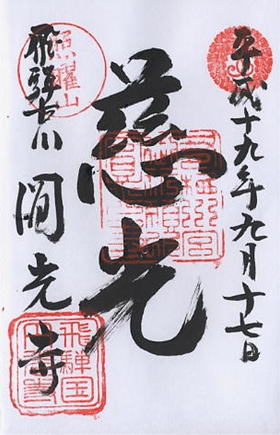 平成十九年九月十七日
慈光
照耀山
飛騨古川
圓光寺
飛騨国